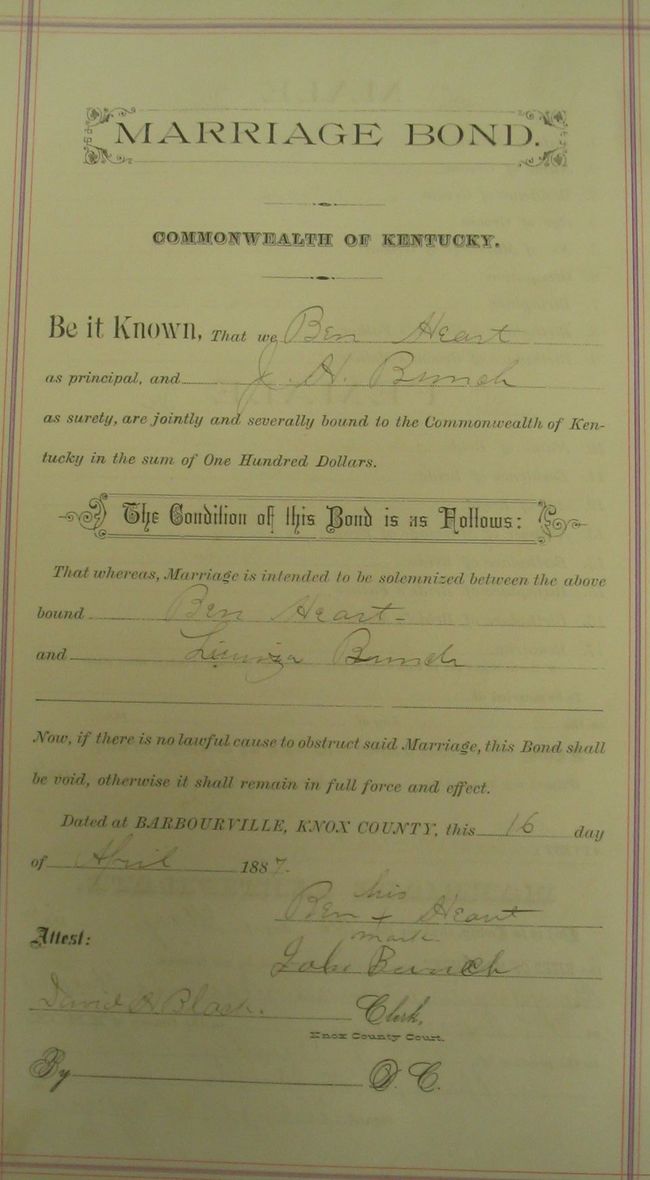 MARRIAGE BOND.
COMMONWEALTH OF KENTUCKY.
Be it Known, That we Ben Heart
as principal, and J. H. Bunch
as surety, are jointly and severally bound to the Commonwealth of Ken-
tucky in the sum of One Hundred Dollars.
The Condition of this Bond is as Follows:
That whereas, Marriage is intended to be solemnized between the above
bound Ben Heart
and Bunch
Now, if there is no lawful cause to obstruct said Marriage, this Bond shall
be void, otherwise it shall remain in full force and effect.
Dated at BARBOURVILLE, KNOX COUNTY, this 16 day
of April 1887.
his
Ben x Heart
mark
Attest:
Bunch
David Clerk,
Knox County Court.
By D. C.